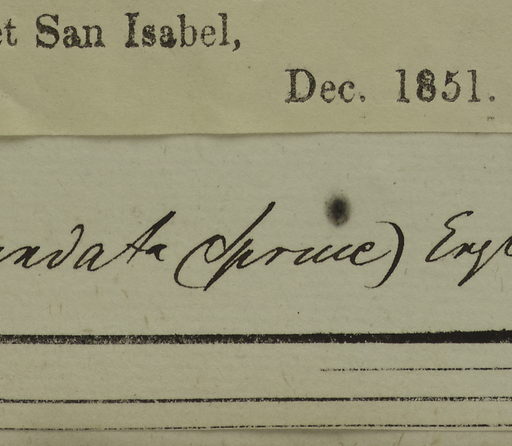 et San Isabel,
Dec. 1851.
undata (Spruce) Engl